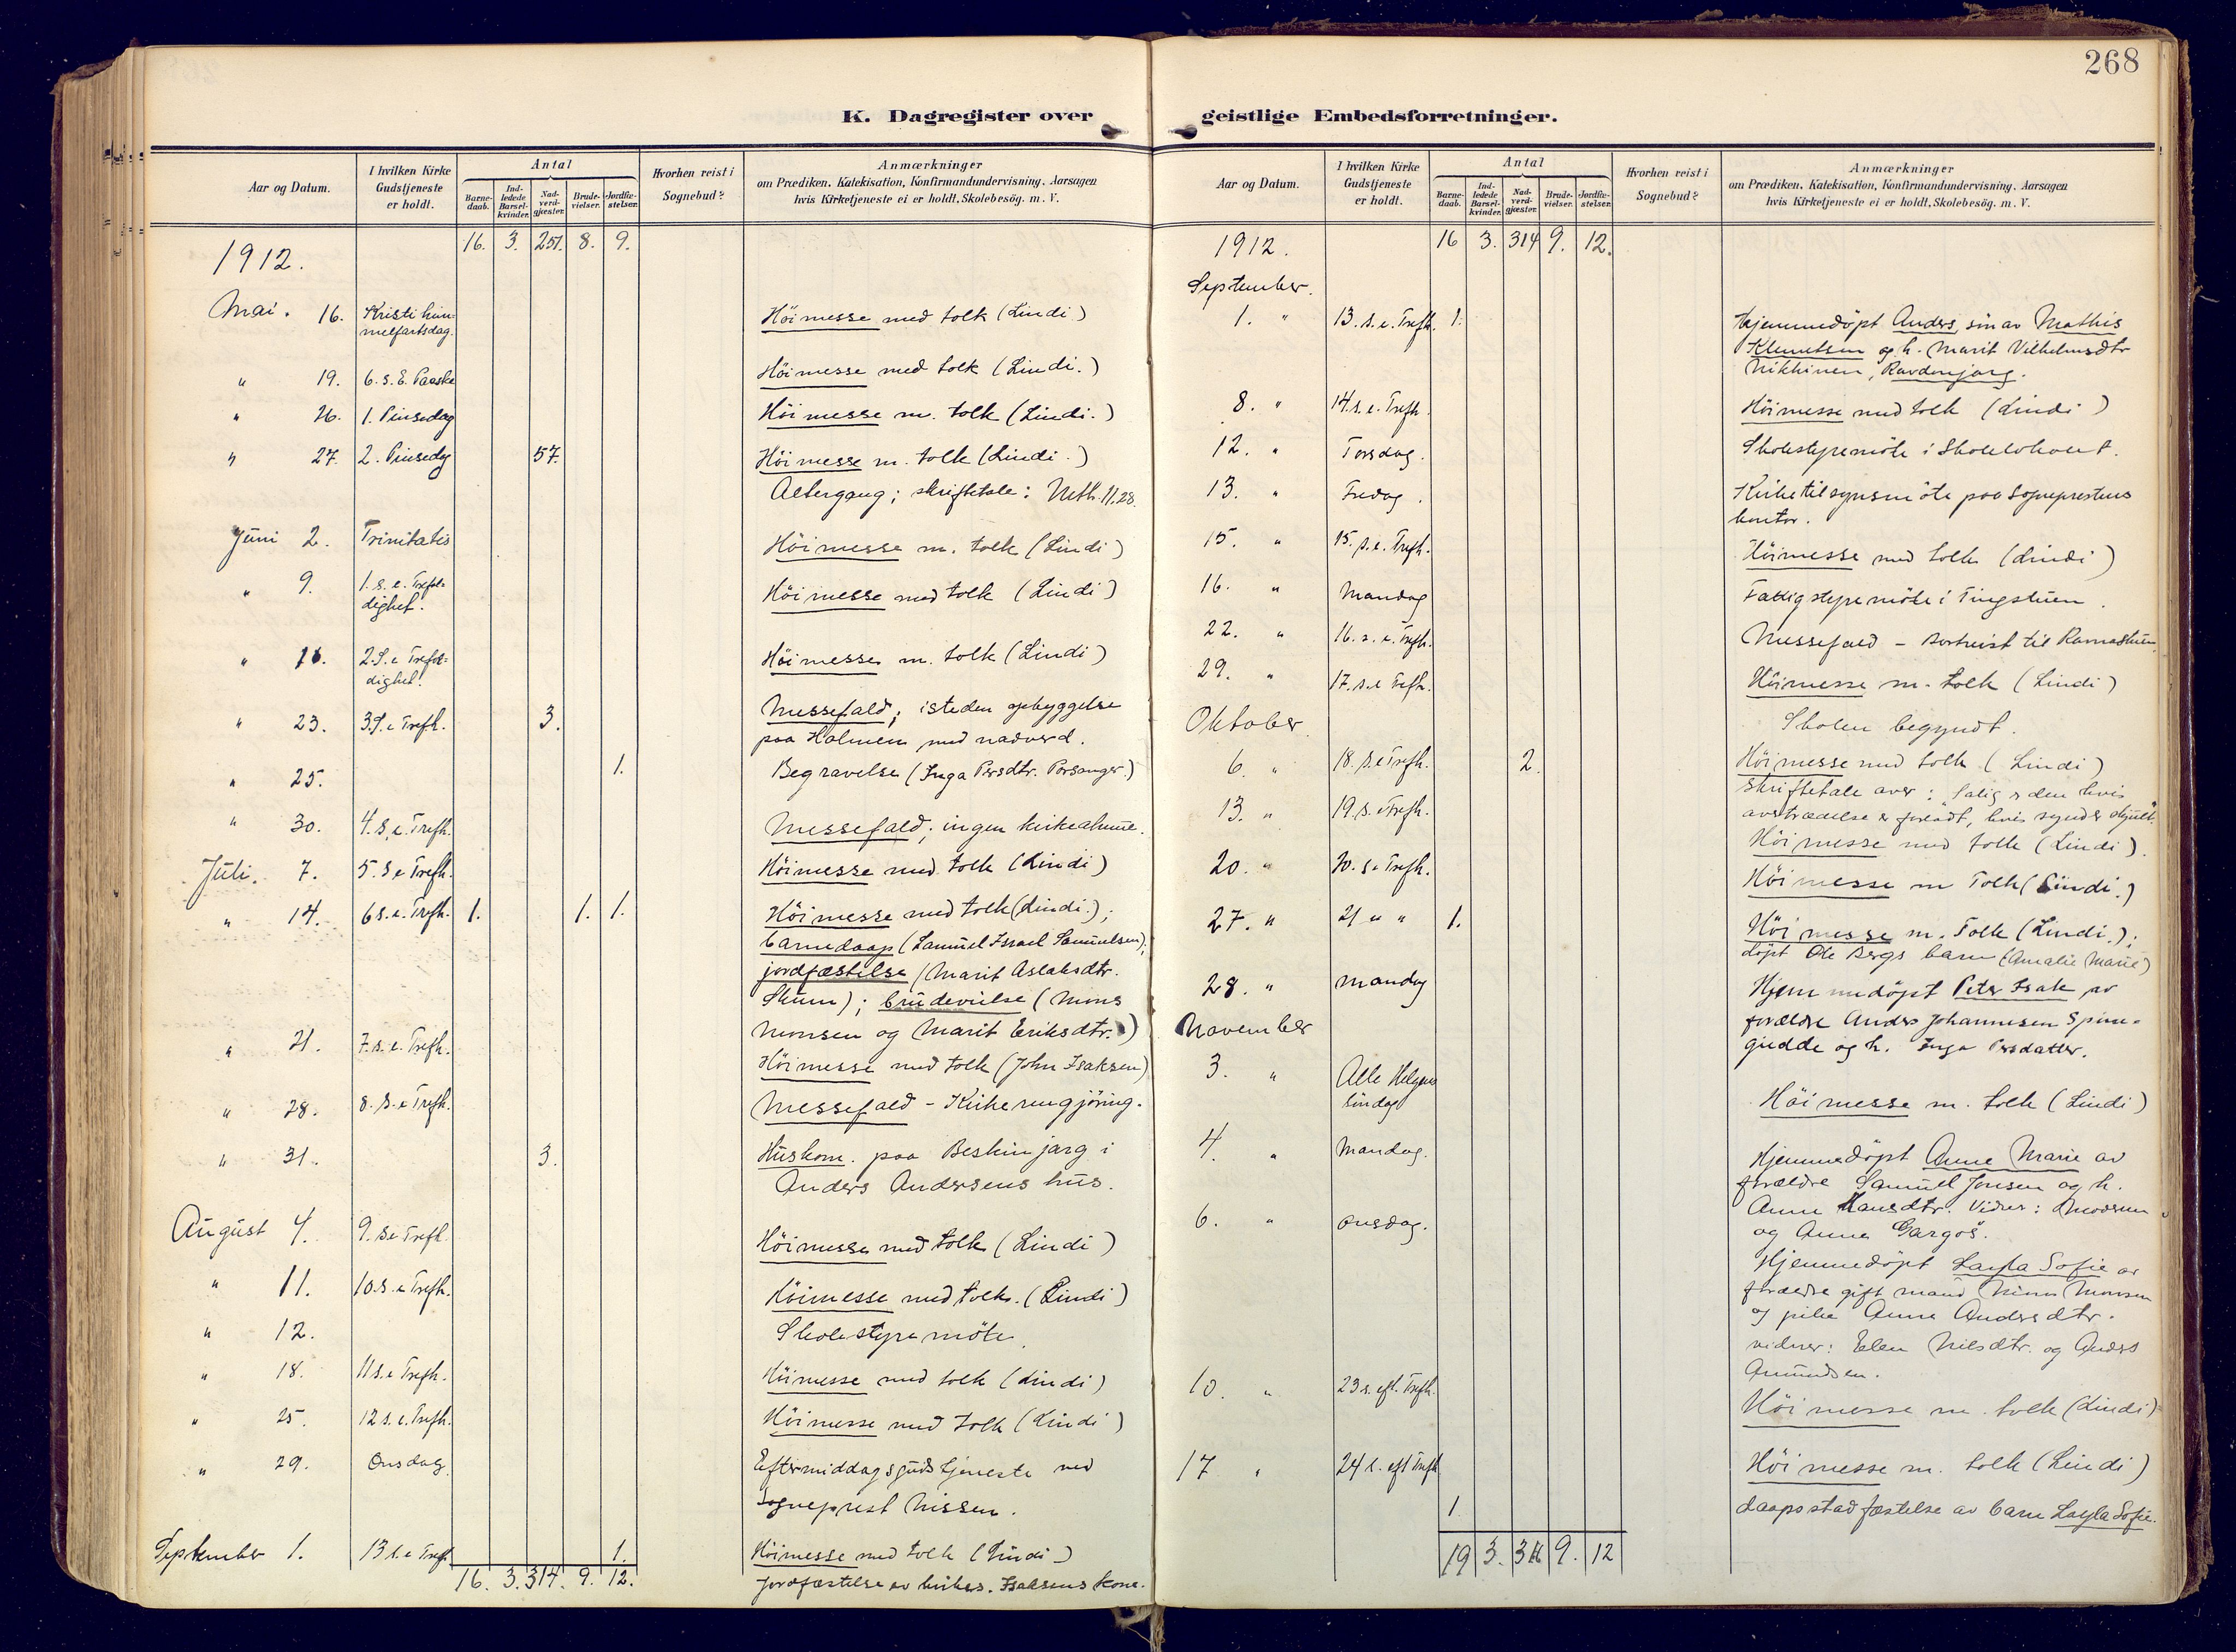 268
K. Dagregister over
geistlige Embedsforretninger.
Aar og Datum.
I hvilken Kirke Gudstjeneste er holdt.
Antal
Barnedaab.
Indledede Barselkvinder.
Nadverdgjæster.
Brudevielser.
Jordfæstelser.
Hvorhen reist i Sognebud?
Anmærkninger
om Prædiken, Katekisation, Konfirmandundervisning, Aarsagen
hvis Kirketjeneste ei er holdt, Skolebesög. m. V.
1912. 16. 3. 251. 8. 9.
Mai. 16. Kristi him- Höimesse med tolk (Lindi)
melfartsdag.
" 19. 6. s. E. Paaske Höimesse med tolk (Lindi.)
" 26. 1. Pinsedag Höimesse m. tolk (Lindi.)
" 27. 2. Pinsedg 57. Höimesse m. tolk (Lindi.)
Altergang; skriftetale: Mth. 11.28.
Juni 2. Trinitatis Höimesse m. tolk (Lindi)
" 9. 1. s. e. Trefol- Höimesse med tolk (Lindi)
dighet.
" 16. 2. S. e Trefol- Höimesse m. tolk (Lindi)
dighet.
" 23. 3. S. e Trefh. 3. Messefald; isteden opbyggelse
paa Holmen med nadverd.
" 25. 1. Begravelse (Inga Persdtr. Porsanger.)
" 30. 4. S. e. Trefh. Messefald; ingen kirkealmue.
Juli. 7. 5. S e Trefh. Höimesse med tolk (Lindi)
" 14. 6 s. e. Trefh. 1. 1. 1. Höimesse med tolk (Lindi.);
barnedaap (Samuel Israel Samuelsen);
jordfæstelse (Marit Aslaksdtr.
Skum); brudevielse (Mons
Monsen og Marit Eriksdtr.)
" 21. 7. s. e. Trefh. Höimesse med tolk (John Isaksen)
" 28. 8. s. e Trefh. Messefald - Kirkerengjöring.
" 31. 3. Huskom. paa Beskinjarg i
Anders Andersens hus.
August 4. 9. s e Trefh. Höimesse med tolk (Lindi)
" 11. 10. s. e Trefh. Höimesse med tolk. (Lindi)
" 12. Skolestyremöte.
" 18. 11 s. e Trefh. Höimesse med tolk (Lindi)
" 25. 12 s. e. Trefh. Höimesse med tolk (Lindi)
" 29. Onsdag Eftermiddagsgudstjeneste ved
sogneprest Nissen.
September 1. 13 s. e Trefh. 1. Höimesse med tolk (Lindi)
16. 3. 314. 9. 12. Jordfæstelse av kirkes. Isaksens kone.
Aar og Datum.
I hvilken Kirke Gudstjeneste er holdt.
Antal
Barnedaab.
Indledede Barselkvinder.
Nadverdgjæster.
Brudevielser.
Jordfæstelser.
Hvorhen reist i Sognebud?
Anmærkninger
om Prædiken, Katekisation, Konfirmandundervisning, Aarsagen
hvis Kirketjeneste ei er holdt, Skolebesög. m. V.
1912. 16 3. 314 9. 12.
September.
1. " 13. s. e. Trefh. 1. Hjemmedöpt Anders, sön av Mathis
Klemetsen og h. Marit Vilhelmsdtr
Nikkinen, Ravdonjarg.
8. " 14. s. e. Trefh. Höimesse med tolk (Lindi)
12. " Torsdag. Skolestyremöte i Skolelokalet.
13. " Fredag. Kirketilsynsmöte paa sogneprestens
kontor.
15. " 15. s. e. Trefh. Höimesse med tolk (Lindi)
16. " Mandag Fattigstyremöte i Tingstuen.
22. " 16. s. e. Trefh. Messefald - bortreist til
29. " 17. s. e Trefh. Höimesse m. tolk (Lindi)
Oktober. Skolen begyndt.
6. " 18. s. e Trefh. 2. Höimesse med tolk (Lindi)
skriftetale over: "Salig er den hvis
overtrædelse er forladt, hvis synd er skjult."
13. " 19. s. e Trefh. Höimesse med tolk (Lindi).
20. " 20. s. e Trefh. Höimesse m Tolk (Lindi.)
27. " 21 " " 1. Höimesse m. Tolk (Lindi.);
döpt Ole Bergs barn (Amalie Marie)
28. " Mandag Hjemmedöpt Peter Isak av
forældre Anders Johannesen Spine-
gjedde og h. Inga Persdatter.
November
3. " Alle Helgens Höimesse m. tolk (Lindi)
söndag
4. " Mandag. Hjemmedöpt Anne Marie av
forældre Samuel Jonsen og h.
Anne Hansdtr. Vidner:
og Anna
6. " Onsdag. Hjemmedöpt Layla Sofie av
forældre gift mand Mons Monsen
og pike Anne Andersdtr.
vidner: Elen Nilsdtr. og Anders
Amundsen.
10. " 23 s. eft. Trefh. Höimesse m. tolk (Lindi)
17 " 24 s. eft Trefh Höimesse m. tolk (Lindi)
1 daapsstadfæstelse av barn Layla Sofie.
19 3. 316 9. 12